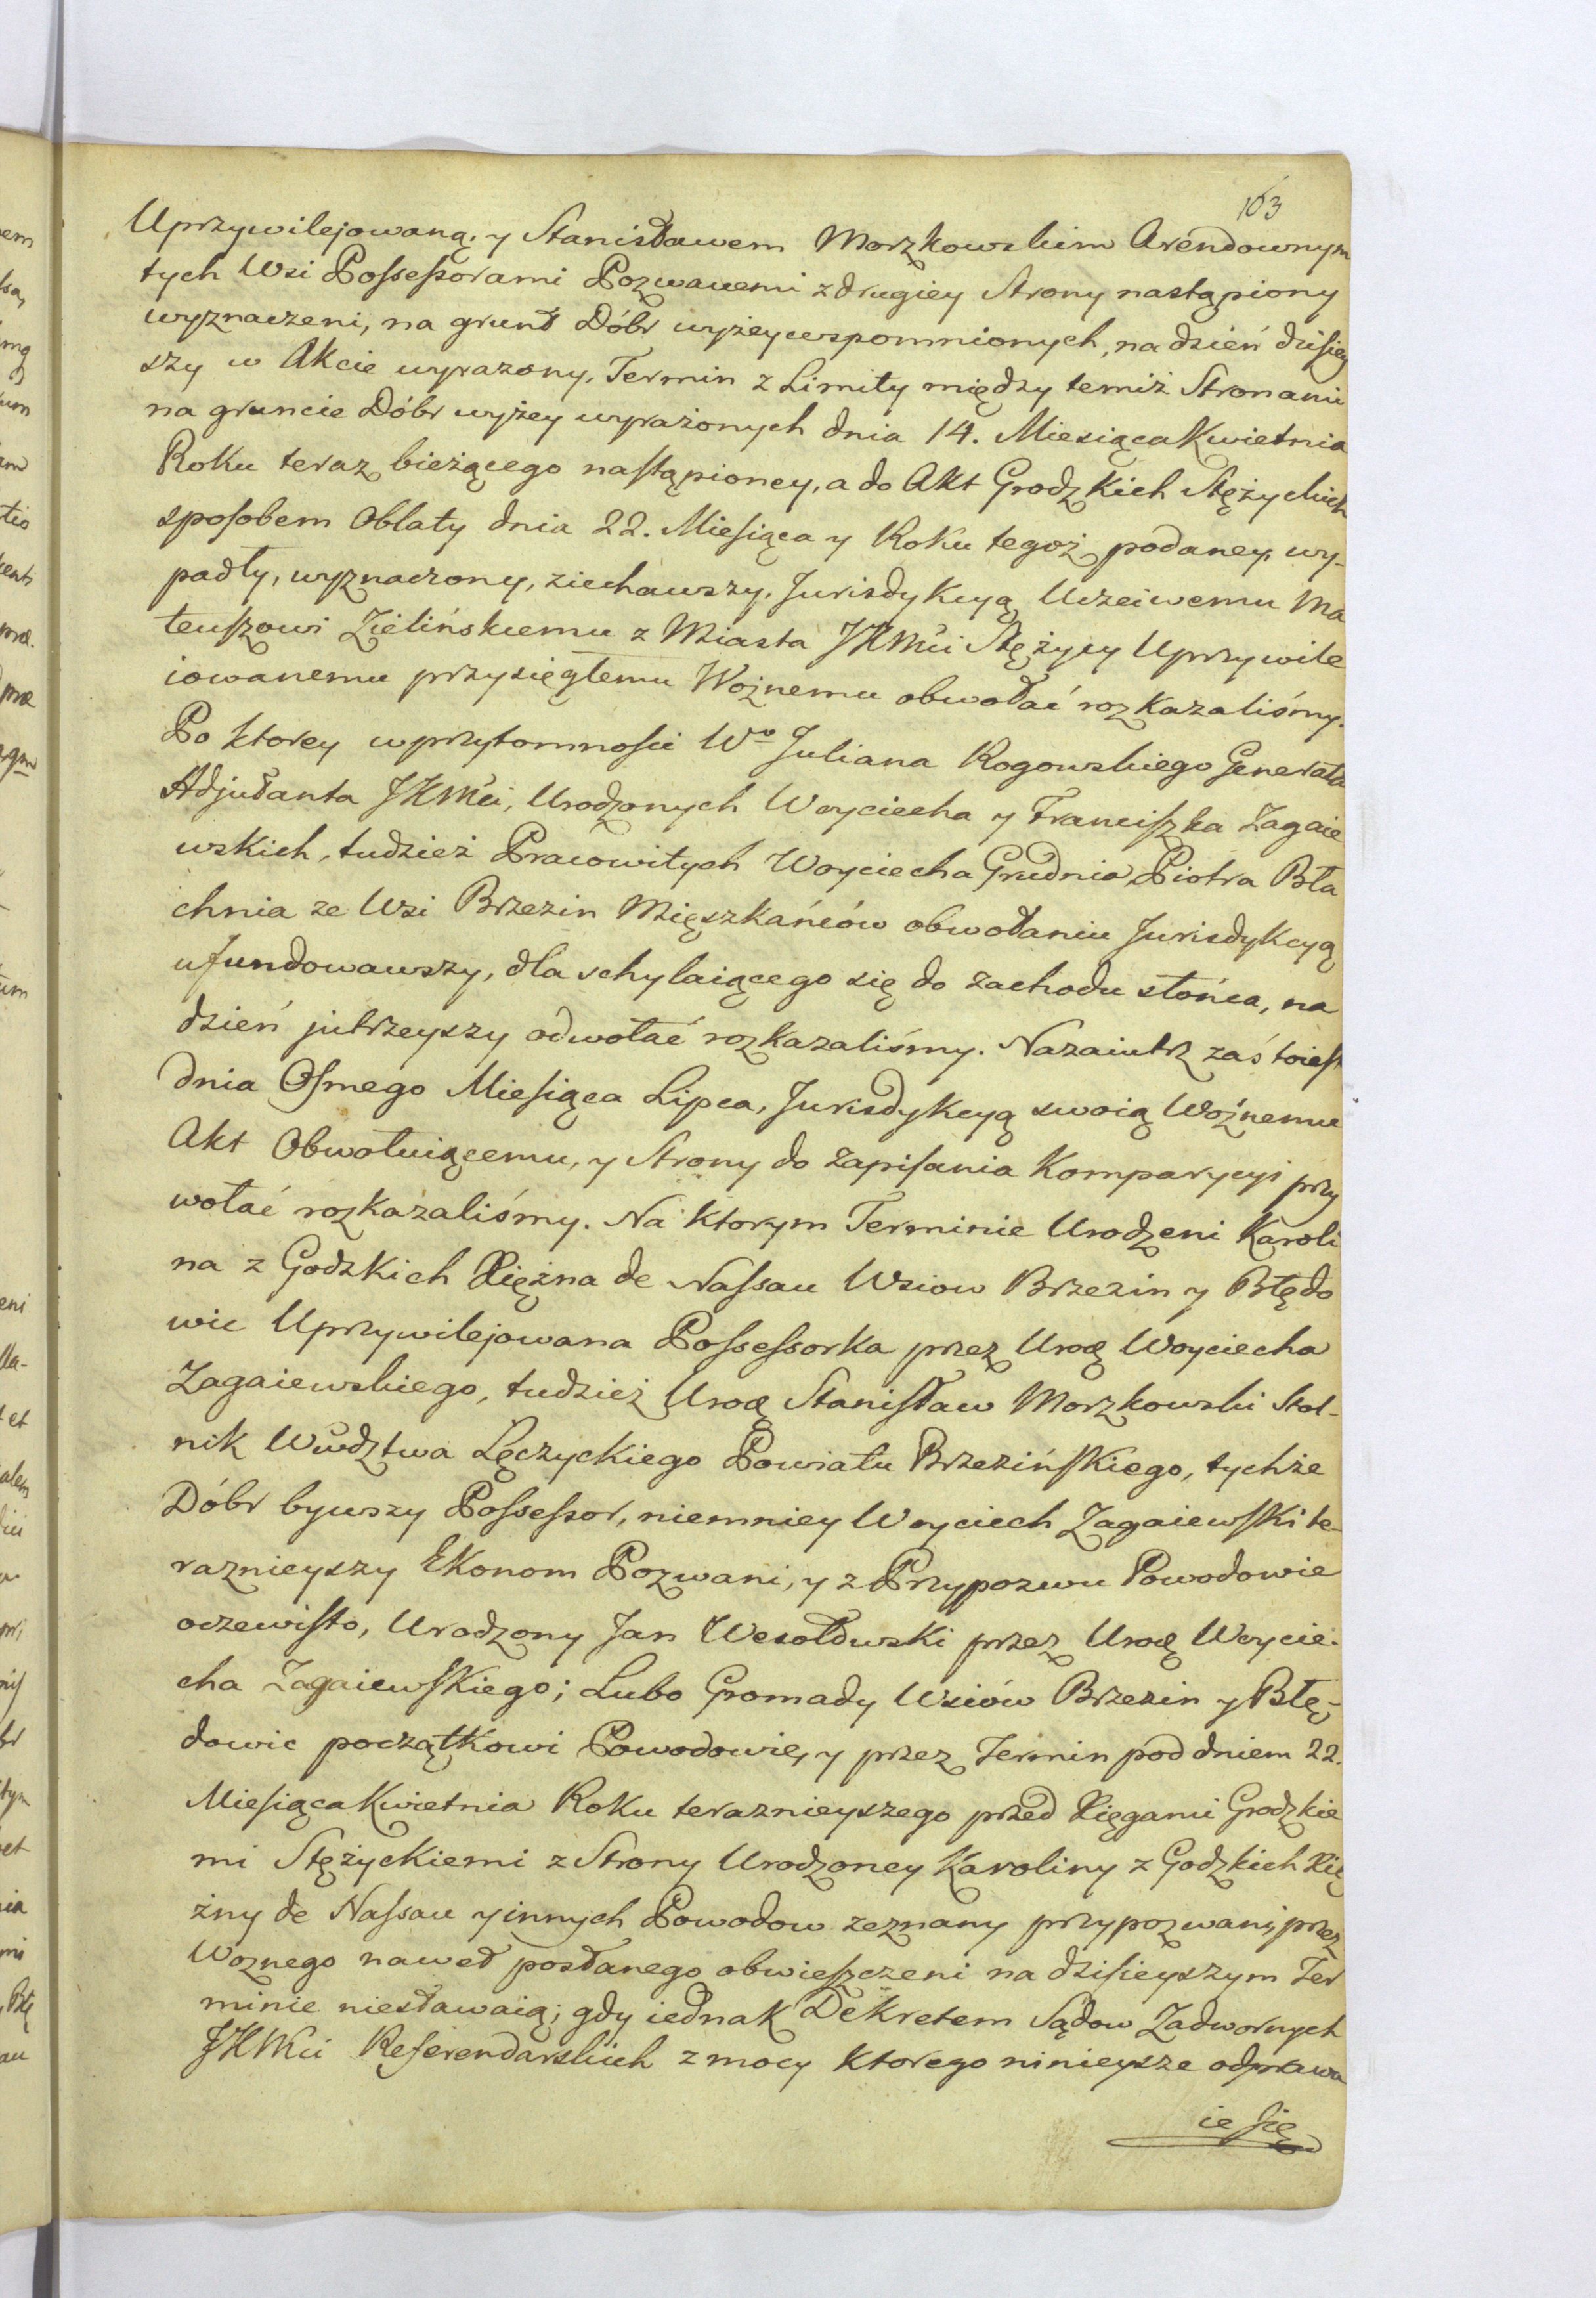 163
Uprzywilejowaną, y Stanisławem Morzkowskim Arendownym
tych Wsi Possessorami Pozwanemi z drugiey Strony nastąpiony
wyznaczeni, na grunt Dóbr wyżeywspomnionych, na dzień dzisiey
szy w Akcie wyrazony, Termin z Limity między temiż Stronami
na gruncie Dóbr wyżey wyrażonych dnia 14. Miesiąca Kwietnia
Roku teraz bieżącego nastąpioney, a do Akt Grodzkich Stężyckich
sposobem Oblaty dnia 22. Miesiąca y Roku tegoż podaney, wy-
padły, wyznaczony, ziechawszy, Jurisdykcyą Uczciwemu Ma
teuszowi Zielińskiemu z Miasta JKMci Stężycy Uprzywile
iowanemu przysięgłemu Woznemu obwołać rozkazaliśmy.
Po ktorey w przytomności Wo Juliana Rogowskiego Generała
Adjudanta JKMci, Urodzonych Woyciecha y Franciszka Zagaie
wskich, tudzież Pracowitych Woyciecha Grudnia Piotra Bła
chnia ze Wsi Brzezin Mięszkańców obwołaniu Jurisdykcyą
ufundowawszy, dla schylaiącego się do zachodu słońca, na
dzień jutrzeyszy odwołać rozkazaliśmy. Nazaiutrz zaś toiest
dnia Osmego Miesiąca Lipca, Jurisdykcyą swoią Woźnemu
Akt Obwołuiącemu, y Strony do zapisania Komparycyi przy
wołać rozkazaliśmy. Na ktorym Terminie Urodzeni Karoli
na z Godzkich Xiężna de Nassau Wsiow Brzezin y Błędo
wic Uprzywilejowana Possessorka przez Urog Woyciecha
Zagaiewskiego, tudzież Urog Stanisław Morzkowski Stol-
nik Wwdztwa Łęczyckiego Powiatu Brzezińskiego, tychże
Dóbr bywszy Possessor, niemniey Woyciech Zagaiewski te-
raznieyszy Ekonom Pozwani, y z Przypozwu Powodowie
oczewisto, Urodzony Jan Wesołowski przez Urog Woycie-
cha Zagaiewskiego; Lubo Gromady Wsiów Brzezin y Błę-
dowic początkowi Powodowie, y przez Termin pod dniem 22.
Miesiąca Kwietnia Roku teraznieyszego przed Xięgami Grodzkie
mi Stężyckiemi z Strony Urodzoney Karoliny z Godzkich Xię
żny de Nassau y innych Powodow zeznany przypozwani, przez
Woznego nawet posłanego obwieszczeni na dzisieyszym Ter
minie niestawaią; gdy iednak Dekretem Sądow Zadwornych
JKMci Referendarskich z mocy ktorego ninieysze odprawa
ie się